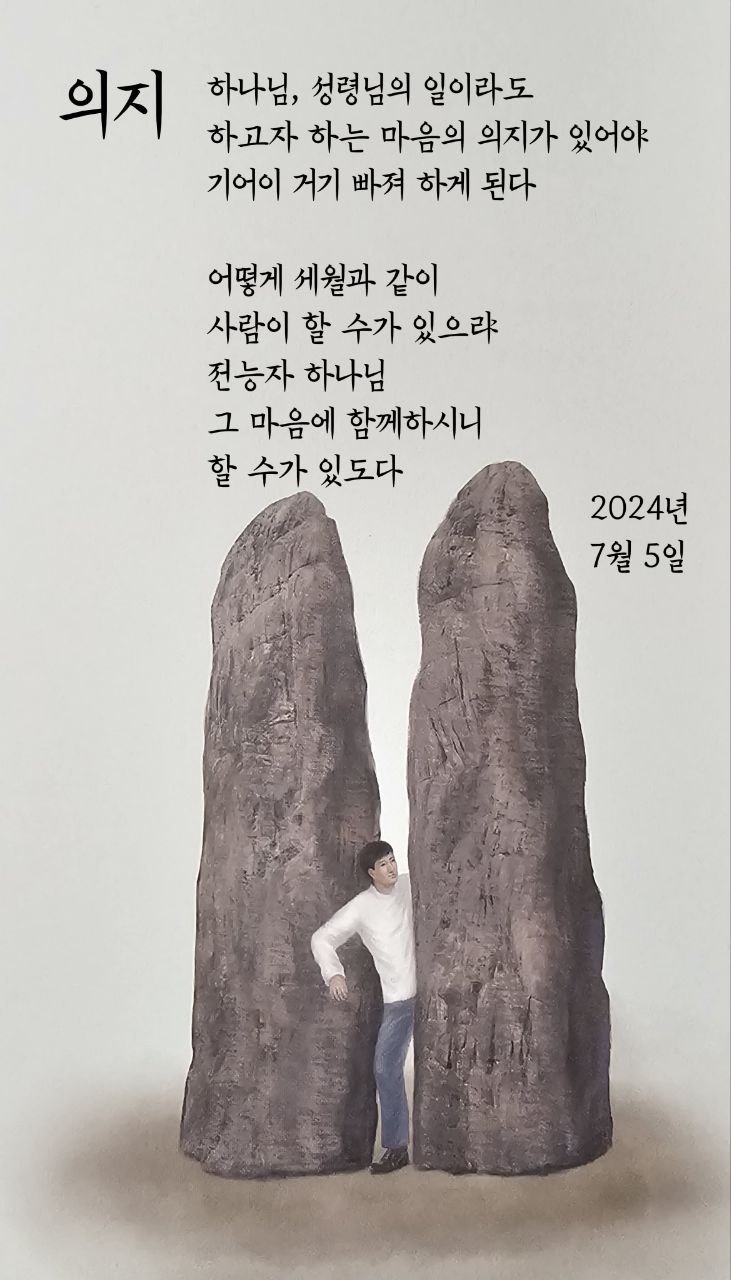 의지
하나님, 성령님의 일이라도
하고자 하는 마음의 의지가 있어야
기어이 거기 빠져 하게 된다
어떻게 세월과 같이
사람이 할 수가 있으랴
전능자 하나님
그 마음에 함께하시니
할 수가 있도다
2024년
7월 5일